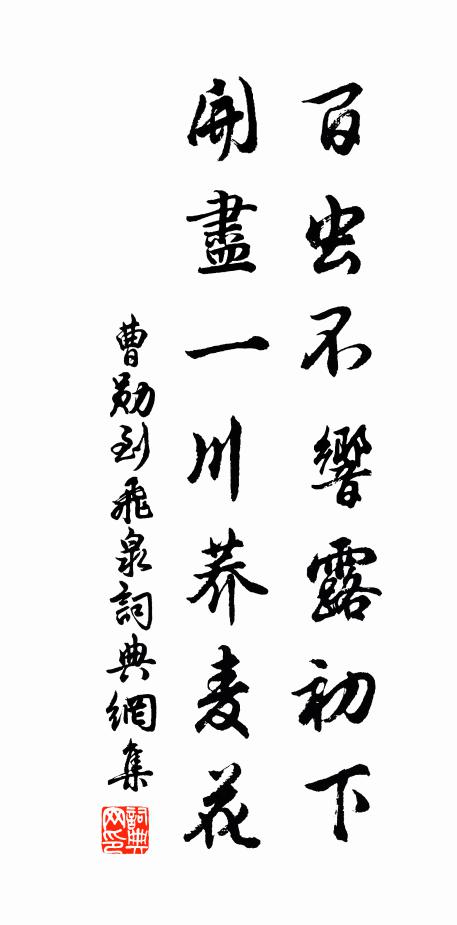 百虫不響露初下
開盡一川荞麦花
曹勛到飛泉詞典網集
詞典网印